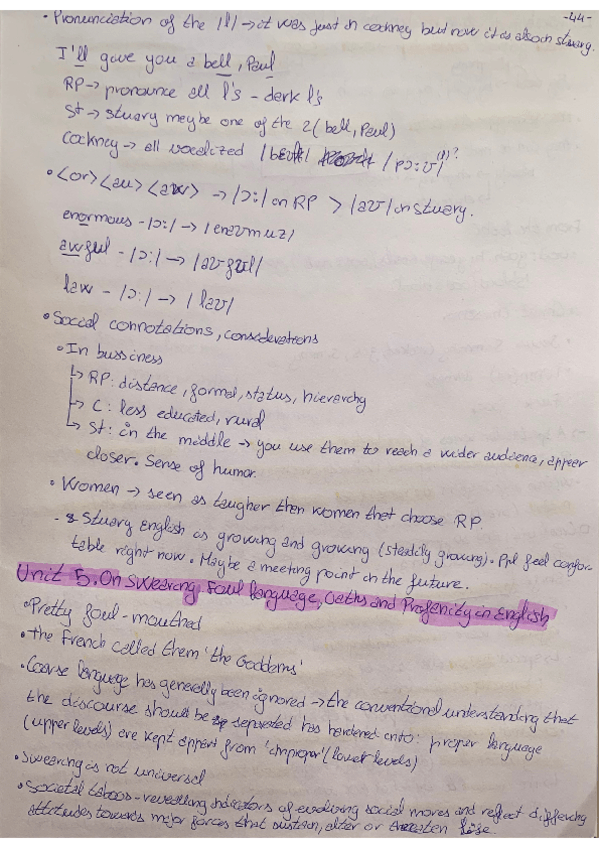 -44-
• Pronunciation of the /l/ → it was just in cockney but now it is also in stuary.
I'll gave you a bell, Paul
RP → pronounce all l's - dark l's
St → stuary maybe one of the 2 (bell, Paul)
Cockney → all vocalized
• <or> <au> <aw> → /ɔ:/ on RP > /aʊ/ on stuary.
enormous - /ɔ:/ →
awful - /ɔ:/ →
law - /ɔ:/ → / laʊ/
• Social connotations, considerations
• In bussiness
↳ RP: distance, formal, status, hierarchy
↳ C: less educated, rural
↳ St: in the middle → you use them to reach a wider audience, appeer
closer. Sense of humor.
• Women → seen as taugher then women that choose RP.
Stuary English as growing and growing (steadily growing). Ppl feel confor-
table right now. Maybe a meeting point in the future.
Unit 5. On Swearing, Foul language, Oaths and Profanity in English
• Pretty foul-mouthed
• The French called them 'the Goddams'
• Coarse language has generally been ignored → the conventional understanding that
the discourse should be separated has hardened into: proper language
(upper levels) are kept appart from 'improper' (lower levels)
• Swearing is not universal
• Societal taboos - revealing indicators of evolving social mores and reflect differing
attitudes towards major forces that sustain, alter or threaten life.